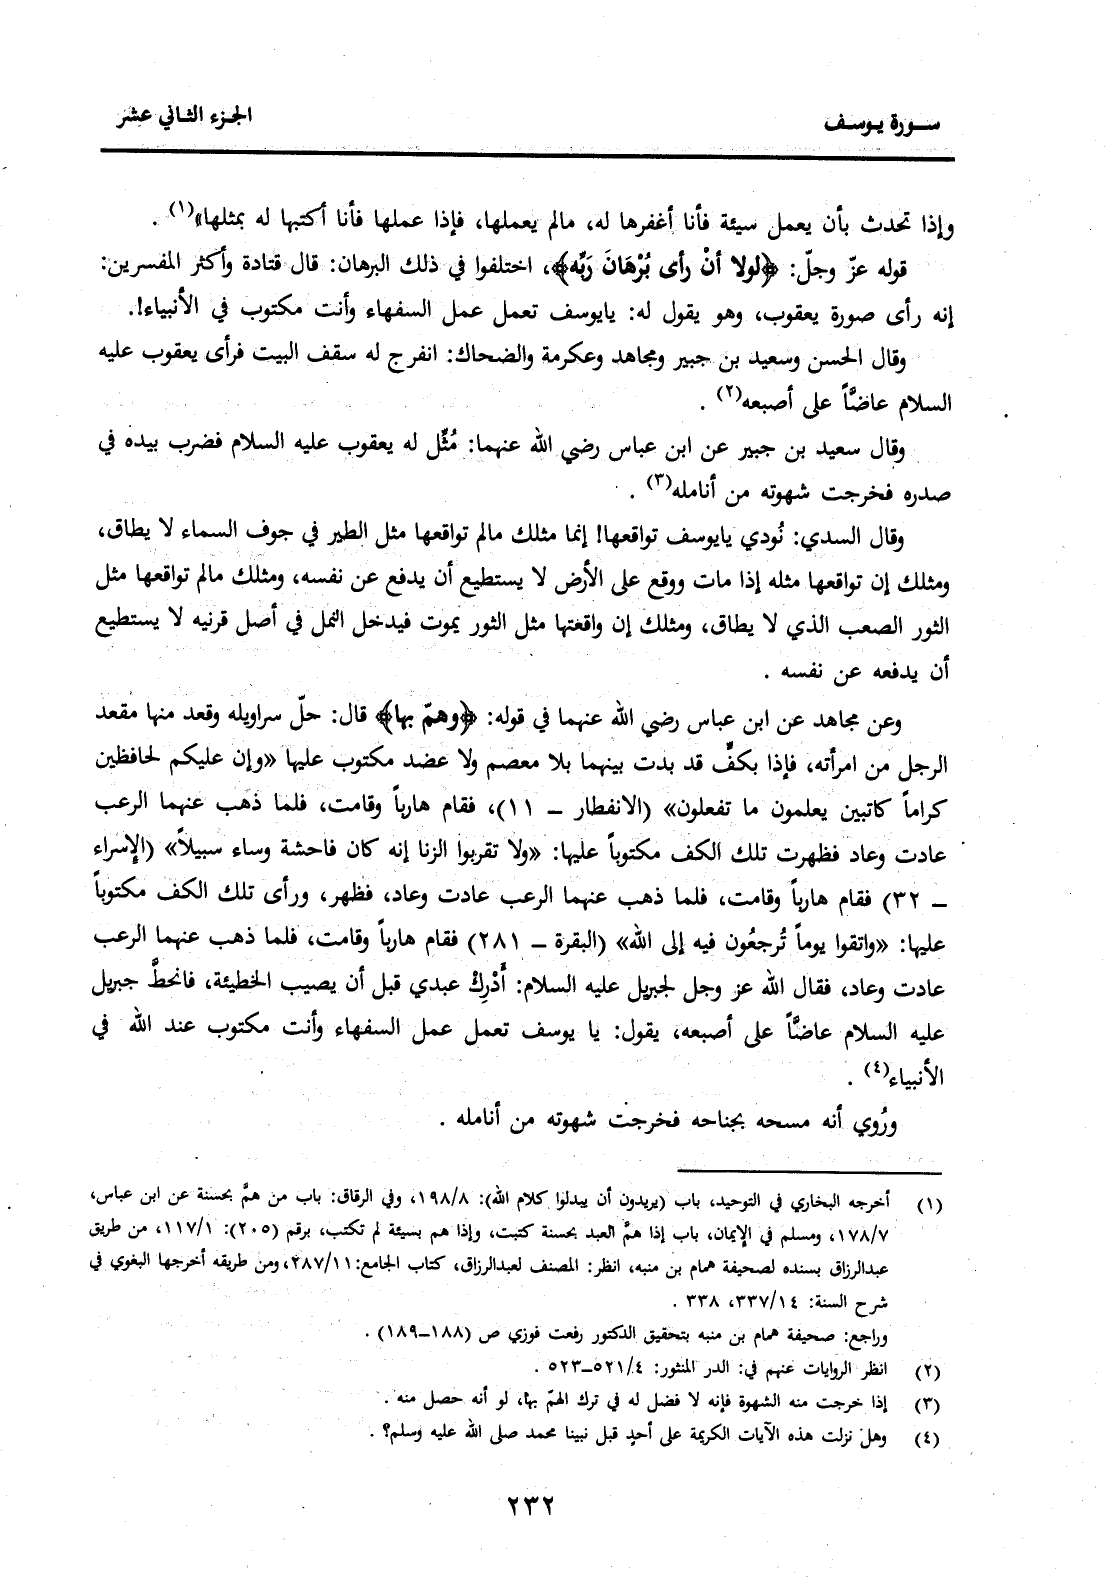 سورة يوسف
الجزء الثاني عشر
وإذا تحدث بأن يعمل سيئة فأنا أغفرها له، مالم يعملها، فإذا عملها فأنا أكتبها له بمثلها»(١) .
قوله عزّ وجلّ: ﴿لولا أنْ رأى بُرْهَانَ رَبِّه﴾، اختلفوا في ذلك البرهان: قال قتادة وأكثر المفسرين:
إنه رأى صورة يعقوب، وهو يقول له: يايوسف تعمل عمل السفهاء وأنت مكتوب في الأنبياء!.
وقال الحسن وسعيد بن جبير ومجاهد وعكرمة والضحاك: انفرج له سقف البيت فرأى يعقوب عليه
السلام عاضّاً على أصبعه(٢) .
وقال سعيد بن جبير عن ابن عباس رضي الله عنهما: مُثِّل له يعقوب عليه السلام فضرب بيده في
صدره فخرجت شهوته من أنامله(٣) .
وقال السدي: نُودي يايوسف تواقعها! إنما مثلك مالم تواقعها مثل الطير في جوف السماء لا يطاق،
ومثلك إن تواقعها مثله إذا مات ووقع على الأرض لا يستطيع أن يدفع عن نفسه، ومثلك مالم تواقعها مثل
الثور الصعب الذي لا يطاق، ومثلك إن واقعتها مثل الثور يموت فيدخل النمل في أصل قرنيه لا يستطيع
أن يدفعه عن نفسه .
وعن مجاهد عن ابن عباس رضي الله عنهما في قوله: ﴿وهمّ بها﴾ قال: حلّ سراويله وقعد منها مقعد
الرجل من امرأته، فإذا بكفٍّ قد بدت بينهما بلا معصم ولا عضد مكتوب عليها «وإن عليكم لحافظين
كراماً كاتبين يعلمون ما تفعلون» (الانفطار ـ ١١)، فقام هارباً وقامت، فلما ذهب عنهما الرعب
عادت وعاد فظهرت تلك الكف مكتوباً عليها: «ولا تقربوا الزنا إنه كان فاحشة وساء سبيلاً» (الإسراء
ـ ٣٢) فقام هارباً وقامت، فلما ذهب عنهما الرعب عادت وعاد، فظهر، ورأى تلك الكف مكتوباً
عليها: «واتقوا يوماً تُرجعُون فيه إلى الله» (البقرة ـ ٢٨١) فقام هارباً وقامت، فلما ذهب عنهما الرعب
عادت وعاد، فقال الله عز وجل لجبريل عليه السلام: أَدْرِكْ عبدي قبل أن يصيب الخطيئة، فانحطَّ جبريل
عليه السلام عاضّاً على أصبعه، يقول: يا يوسف تعمل عمل السفهاء وأنت مكتوب عند الله في
الأنبياء(٤) .
ورُوي أنه مسحه بجناحه فخرجت شهوته من أنامله .
(١) أخرجه البخاري في التوحيد، باب (يريدون أن يبدلوا كلام الله): ١٩٨/٨، وفي الرقاق: باب من همَّ بحسنة عن ابن عباس،
١٧٨/٧، ومسلم في الإيمان، باب إذا همَّ العبد بحسنة كتبت، وإذا هم بسيئة لم تكتب، برقم (٢٠٥): ١١٧/١، من طريق
عبدالرزاق بسنده لصحيفة همام بن منبه، انظر: المصنف لعبدالرزاق، كتاب الجامع: ٢٨٧/١١، ومن طريقه أخرجها البغوي في
شرح السنة: ٣٣٧/١٤، ٣٣٨ .
وراجع: صحيفة همام بن منبه بتحقيق الدكتور رفعت فوزي ص (١٨٨ـ١٨٩) .
(٢) انظر الروايات عنهم في: الدر المنثور: ٥٢١/٤ـ٥٢٣ .
(٣) إذا خرجت منه الشهوة فإنه لا فضل له في ترك الهمّ بها، لو أنه حصل منه .
(٤) وهل نزلت هذه الآيات الكريمة على أحدٍ قبل نبينا محمد صلى الله عليه وسلم؟ .
٢٣٢